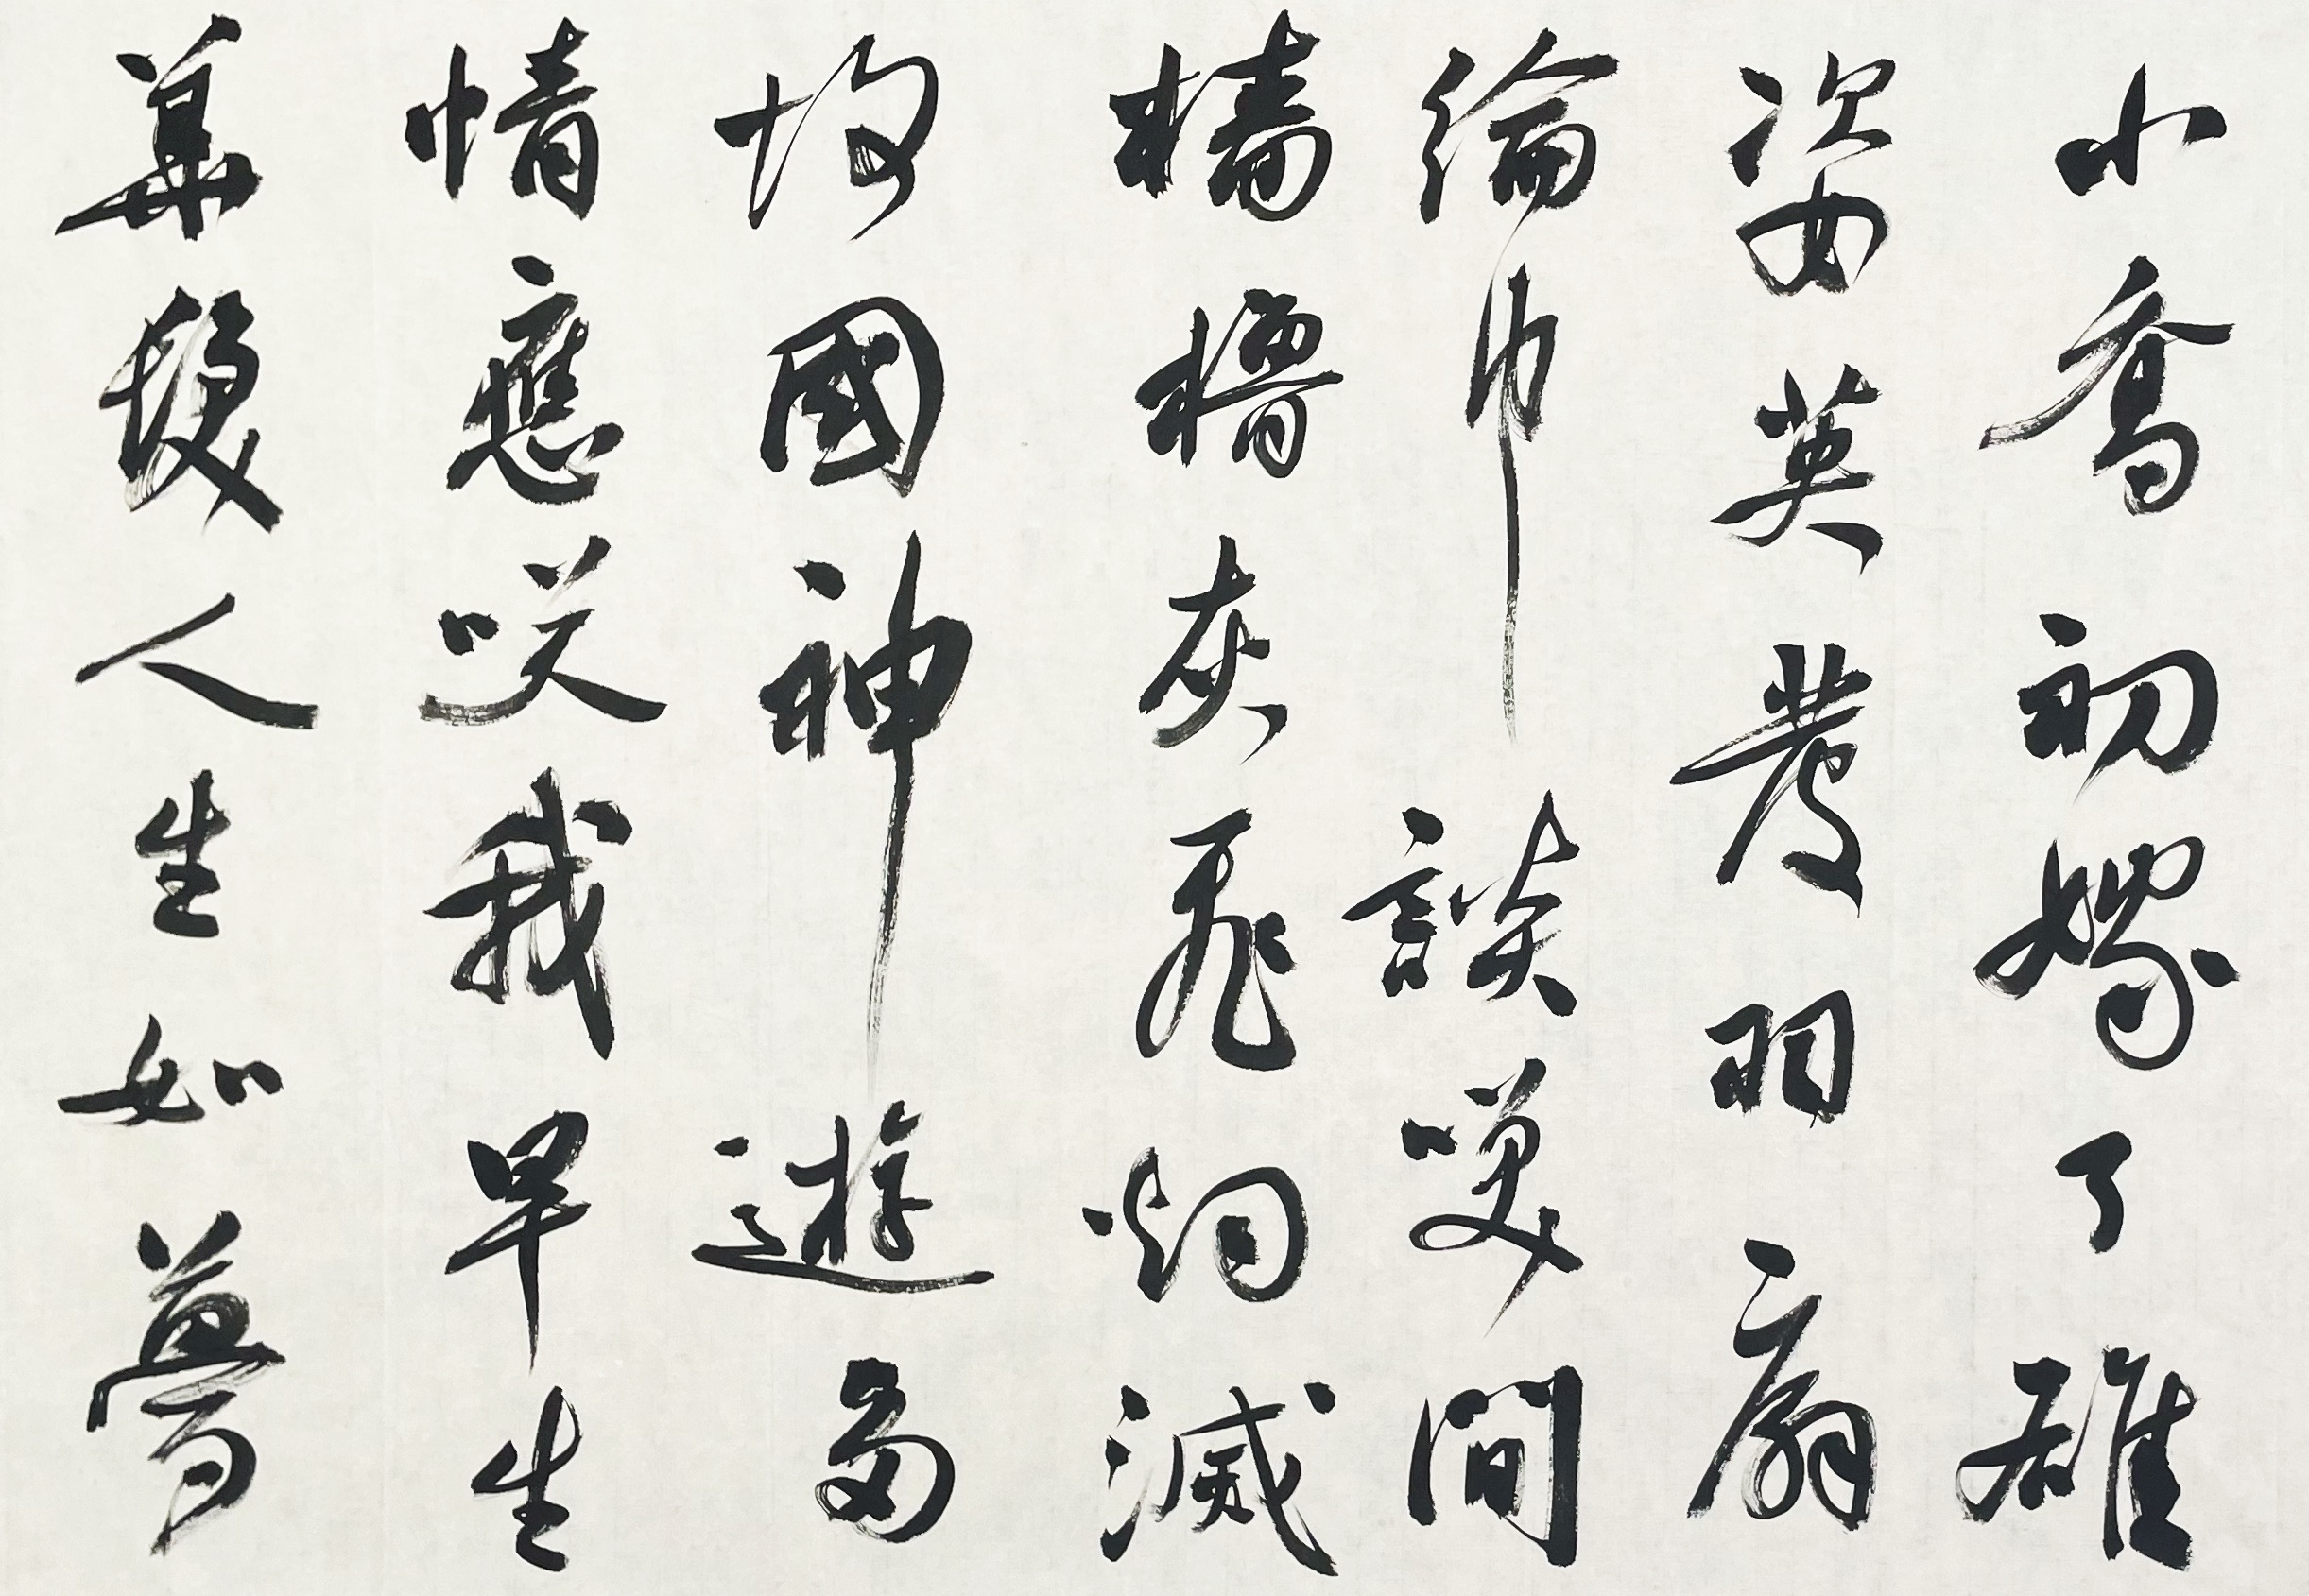 小喬初嫁了雄
姿英發羽扇
綸巾談笑間
檣櫓灰飛烟滅
故國神遊多
情應咲我早生
華髮人生如夢